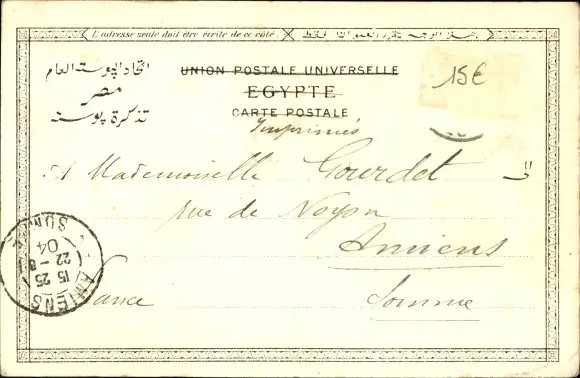 L'adresse seule doit être écrite de ce côté.
اتحاد البوستة العام
مصر
تذكرة بوستة
UNION POSTALE UNIVERSELLE
EGYPTE
CARTE POSTALE
Imprimés
15€
A Mademoiselle Gourdet
rue de Noyon
Amiens
Somme
France
AMIENS
15 25
22 - 8
04